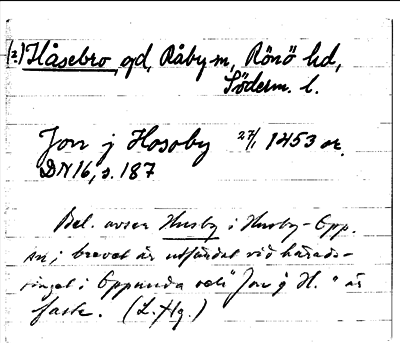 (?) Håsebro, gd, Råby sn, Rönö hd,
Söderm. l.
Jon j Hosoby 27/1 1453 or.
DN 16, s. 187
Bel. avser Husby i Husby-Opp.
sn; brevet är utfärdat vid härads-
tinget i Oppunda och "Jon j H." är
faste. (L. Hg.)